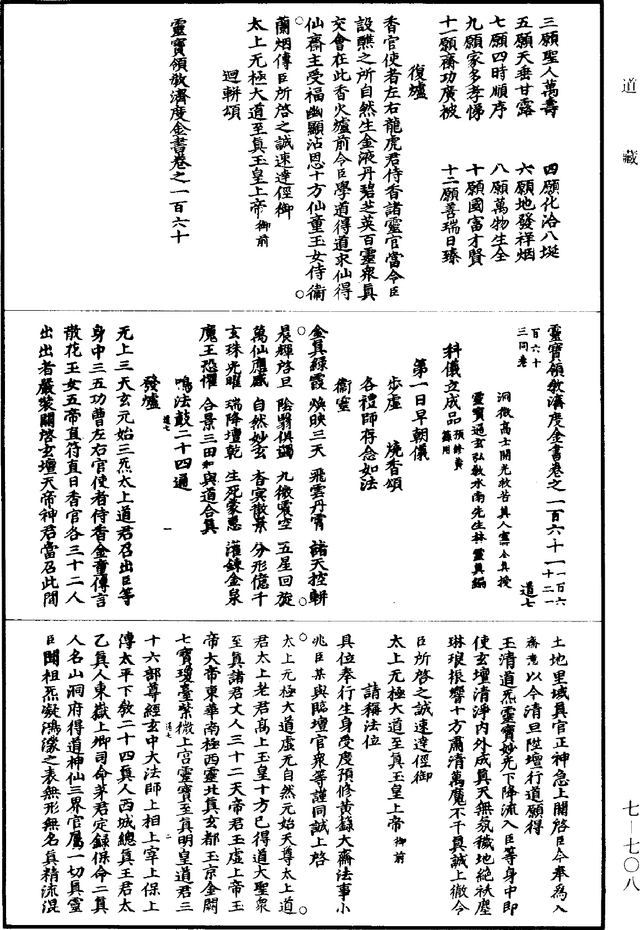 道藏
三願聖人萬壽　四願化洽八埏
五願天垂甘露　六願地發祥烟
七願四時順序　八願萬物生全
九願家多孝悌　十願國富才賢
十一願齋功廣被　十二願善瑞日臻
復爐
香官使者左右龍虎君侍香諸靈官當令臣
設醮之所自然生金液丹碧芝英百靈衆真
交會在此香火爐前令臣學道得道求仙得
仙齋主受福幽顯沾恩十方仙童玉女侍衛
蘭烟傳臣所啓之誠速達徑御
太上无極大道至真玉皇上帝御前
迴軿頌
靈寶領教濟度金書卷之一百六十
靈寶領教濟度金書卷之一百六十一
一百六十二
百六十三同卷
道七
洞微高士開光救苦真人甯全真授
靈寶通玄弘教水南先生林靈真編
科儀立成品預修黃籙用
第一日早朝儀
步虛　燒香頌
各禮師存念如法
衛靈
金真緑霞　煥映三天　飛雲丹霄　諸天控軿
晨輝啓旦　陰翳俱蠲　九微震空　五星回旋
萬仙應感　自然妙玄　杳冥散景　分形億千
玄珠光曜　瑞降壇乾　生死蒙惠　灌鍊金泉
魔王恐懼　合景三田　和與道合真
鳴法鼓二十四通
發爐
无上三天玄元始三炁太上道君召出臣等
身中三五功曹左右官使者侍香金童傳言
散花玉女五帝直符直日香官各三十二人
出出者嚴裝關啓玄壇天帝神君當召此間
土地里域真官正神急上關啓臣今奉為入
齋意以今清旦陞壇行道願得
玉清道炁靈寶妙光下降流入臣等身中即
使玄壇清淨内外成真天無氛穢地絶袄塵
琳琅振響十方肅清萬魔不干真誠上徹令
臣所啓之誠速達徑御
太上无極大道至真玉皇上帝御前
請稱法位
具位奉行生身受度預修黃籙大齋法事小
兆臣某與臨壇官衆等謹同誠上啓
太上无極大道虛无自然元始天尊太上道
君太上老君高上玉皇十方已得道大聖衆
至真諸君丈人三十二天帝君玉虛上帝玉
帝大帝東華南極西靈北真玄都玉京金闕
七寶瓊臺紫微上宫靈寶至真明皇道君三
十六部尊經玄中大法師上相上宰上保上
傅太平下教二十四真人西城總真王君太
乙真人東嶽上卿司命茅君定錄保命二真
人名山洞府得道神仙三界官屬一切真靈
臣聞祖炁凝鴻濛之表無形無名真精流混
七—七〇八